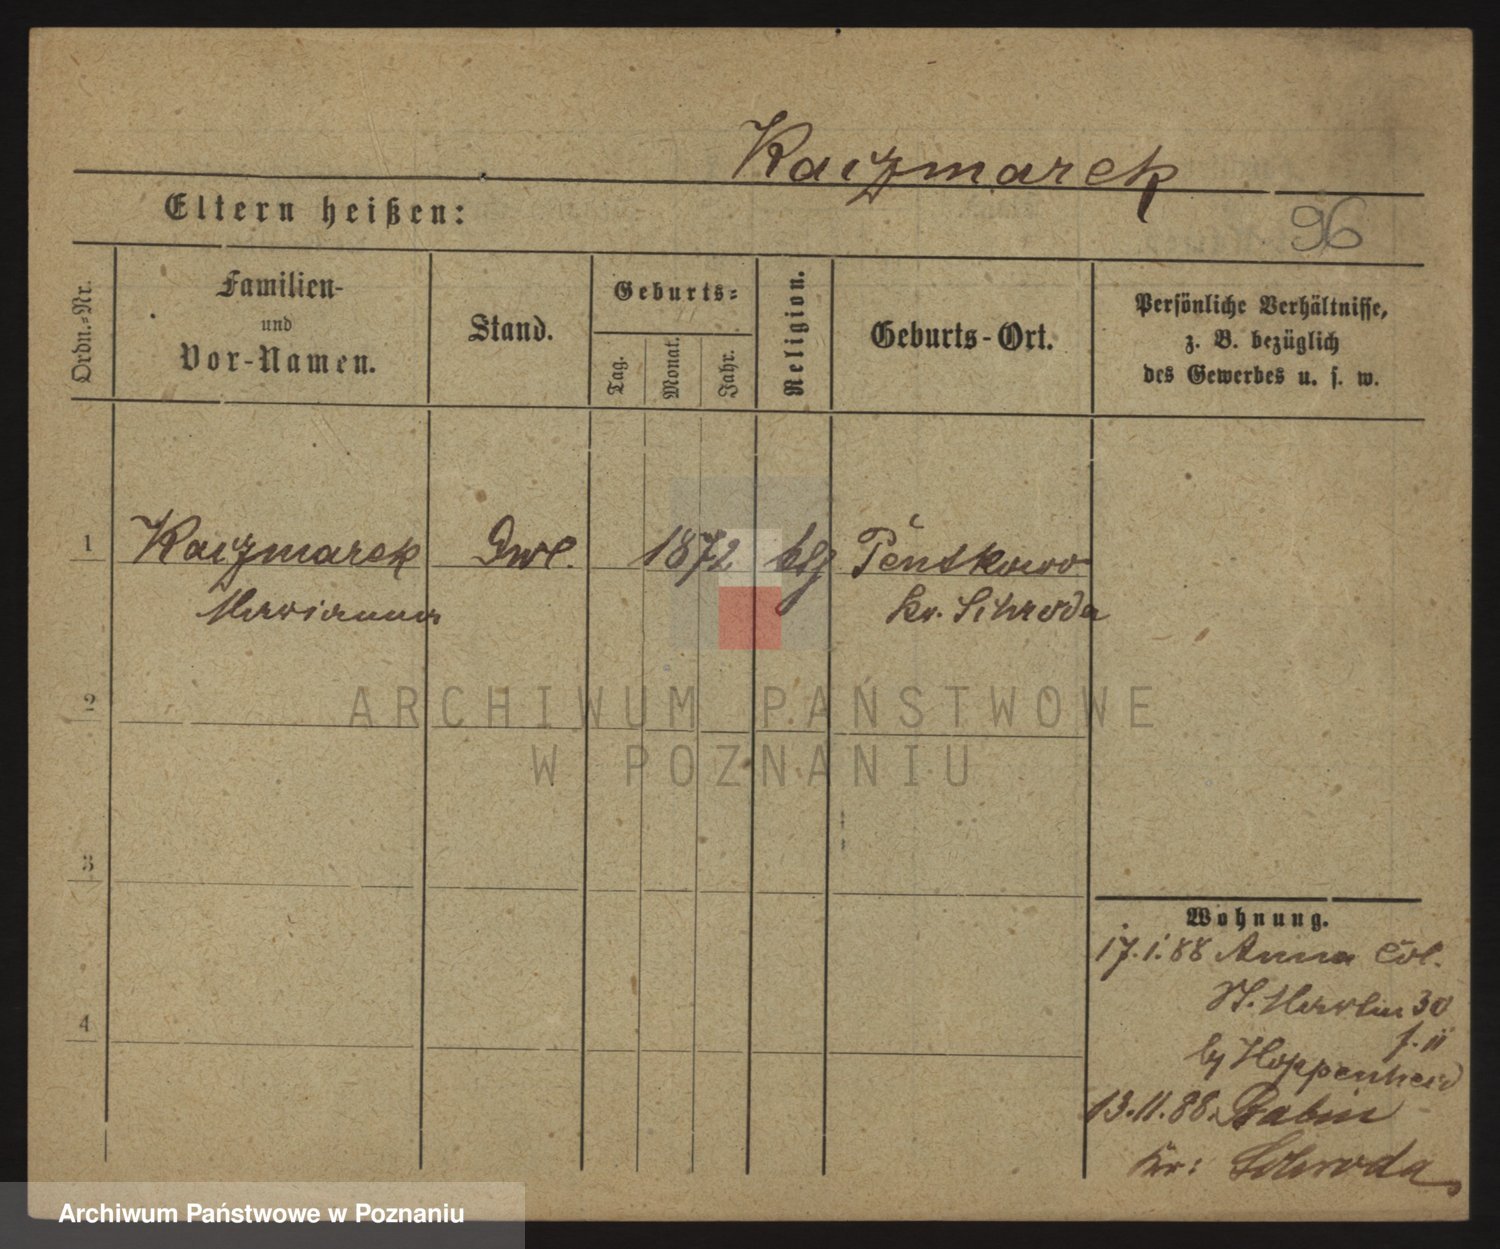 Kaczmarek
Eltern heißen:
96
Ordn.=Nr.
Familien-
und
Vor-Namen.
Stand.
Geburts=
Tag.
Monat.
Jahr.
Religion.
Geburts-Ort.
Persönliche Verhältnisse,
z. B. bezüglich
des Gewerbes u. s. w.
1
Kaczmarek
Marianna
1872
Pentkowo
Kr. Schroda
2
ARCHIWUM PAŃSTWOWE
W POZNANIU
3
4
Wohnung.
17.1.88 Anna
St. Martin 30
Hoppenheid
13.11.88. Babin
Kr: Schroda
Archiwum Państwowe w Poznaniu